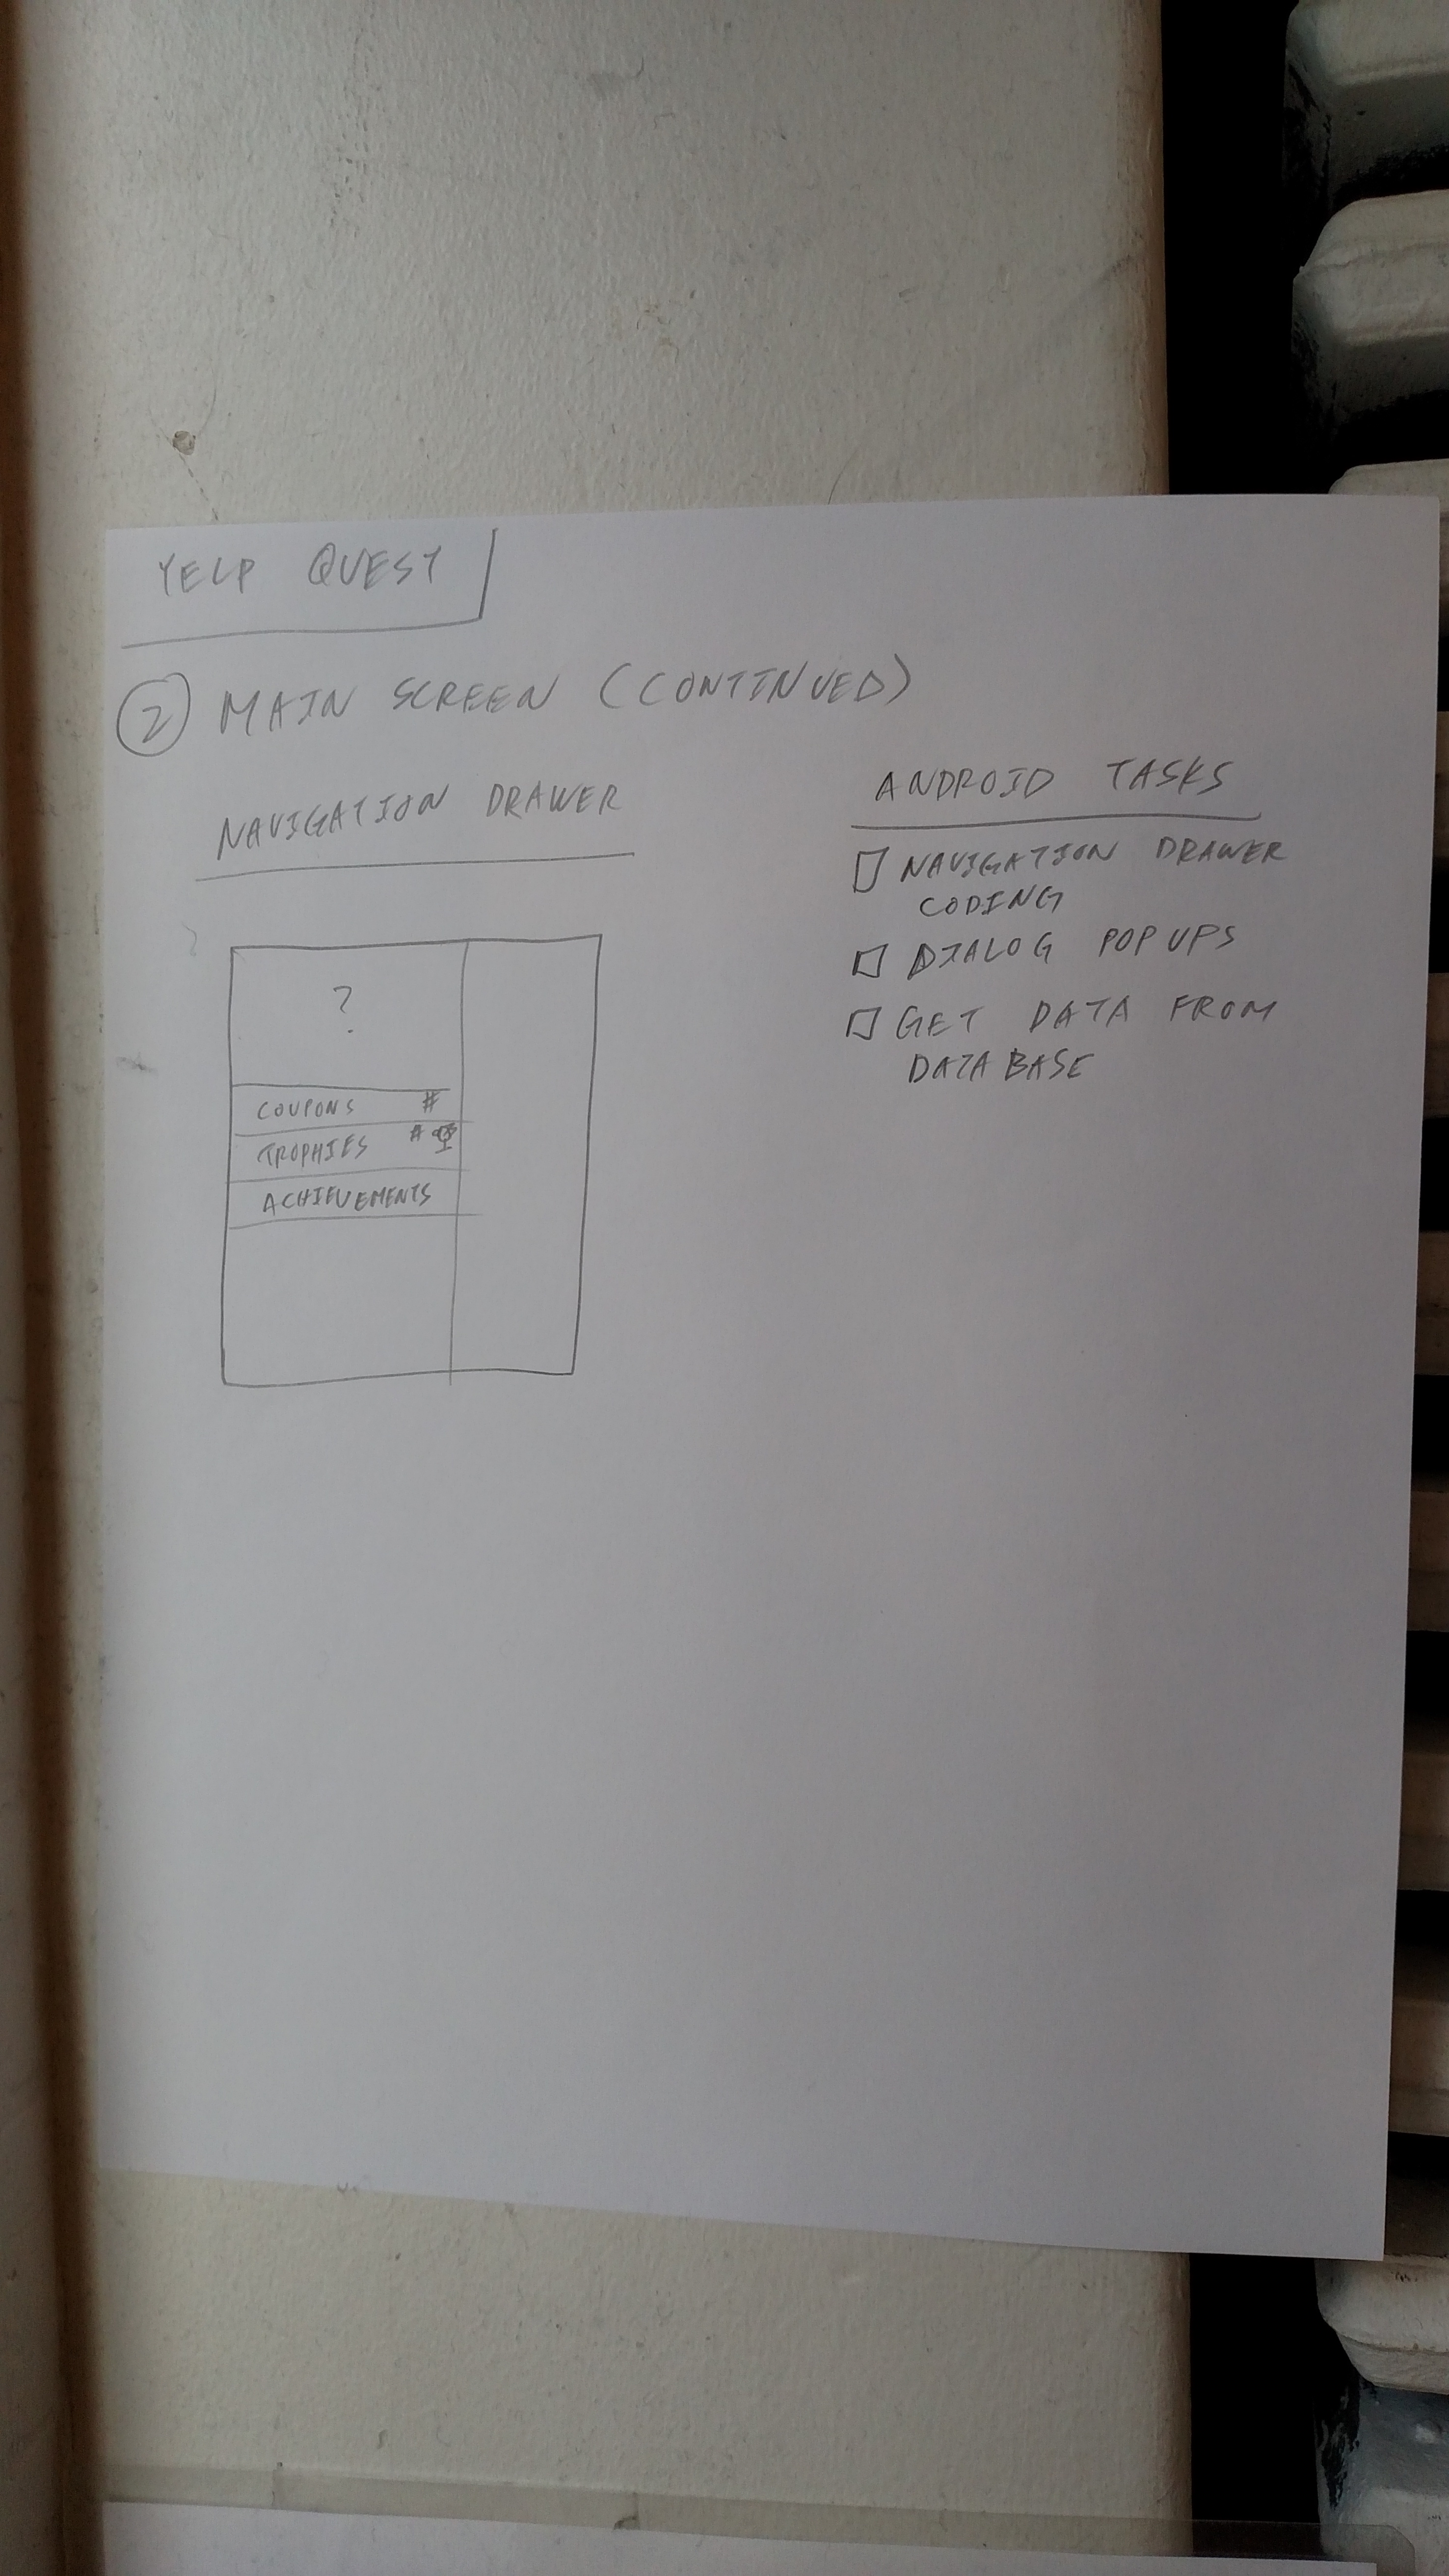 YELP QUEST
2 MAIN SCREEN (CONTINUED)
NAVIGATION DRAWER
?
COUPONS #
TROPHIES #
ACHIEVEMENTS
ANDROID TASKS
NAVIGATION DRAWER
CODING
DIALOG POPUPS
GET DATA FROM
DATABASE